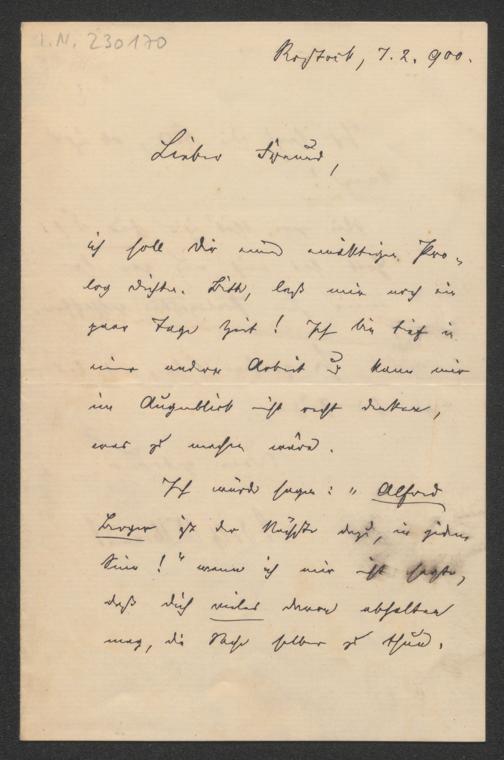 I.N. 230170
Rostock, 7.2.900.
Lieber Freund,
ich soll Dir einen Pro-
log dichten. Bitt, laß mir noch ein
paar Tage Zeit! Ich bin tief in
einer andern Arbeit u. kann mir
im Augenblick nicht recht denken,
was zu machen wäre.
Ich würde sagen: "Alfred
Berger ist der Nächste dazu, in jedem
Sinn!" wenn ich mir nicht sagte,
daß Dich vieles davon abhalten
mag, die Sache selber zu thun.